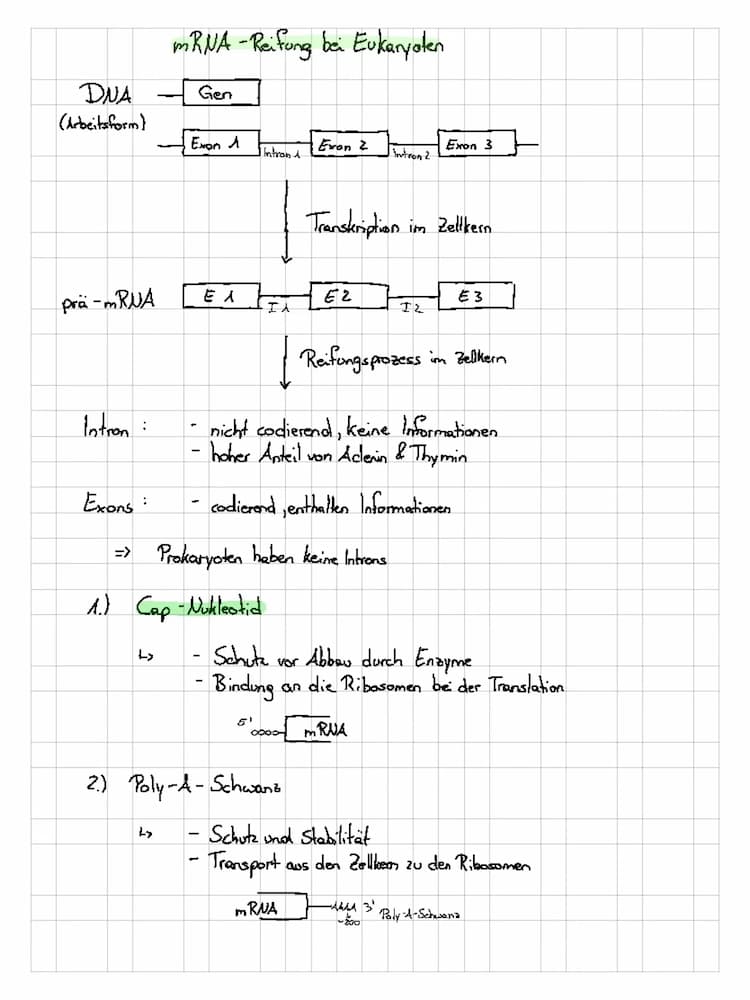 mRNA - Reifung bei Eukaryoten
DNA
Gen
(Arbeitsform)
Exon 1 Intron 1 Exon 2 Intron 2 Exon 3
Transkription im Zellkern
prä-mRNA E 1 I 1 E 2 I 2 E 3
Reifungsprozess im Zellkern
Intron : - nicht codierend, keine Informationen
- hoher Anteil von Adenin & Thymin
Exons : - codierend, enthalten Informationen
=> Prokaryoten haben keine Introns
1.) Cap-Nukleotid
↳ - Schutz vor Abbau durch Enzyme
- Bindung an die Ribosomen bei der Translation
5' mRNA
2.) Poly-A-Schwanz
↳ - Schutz und Stabilität
- Transport aus den Zellkern zu den Ribosomen
mRNA 3' Poly-A-Schwanz